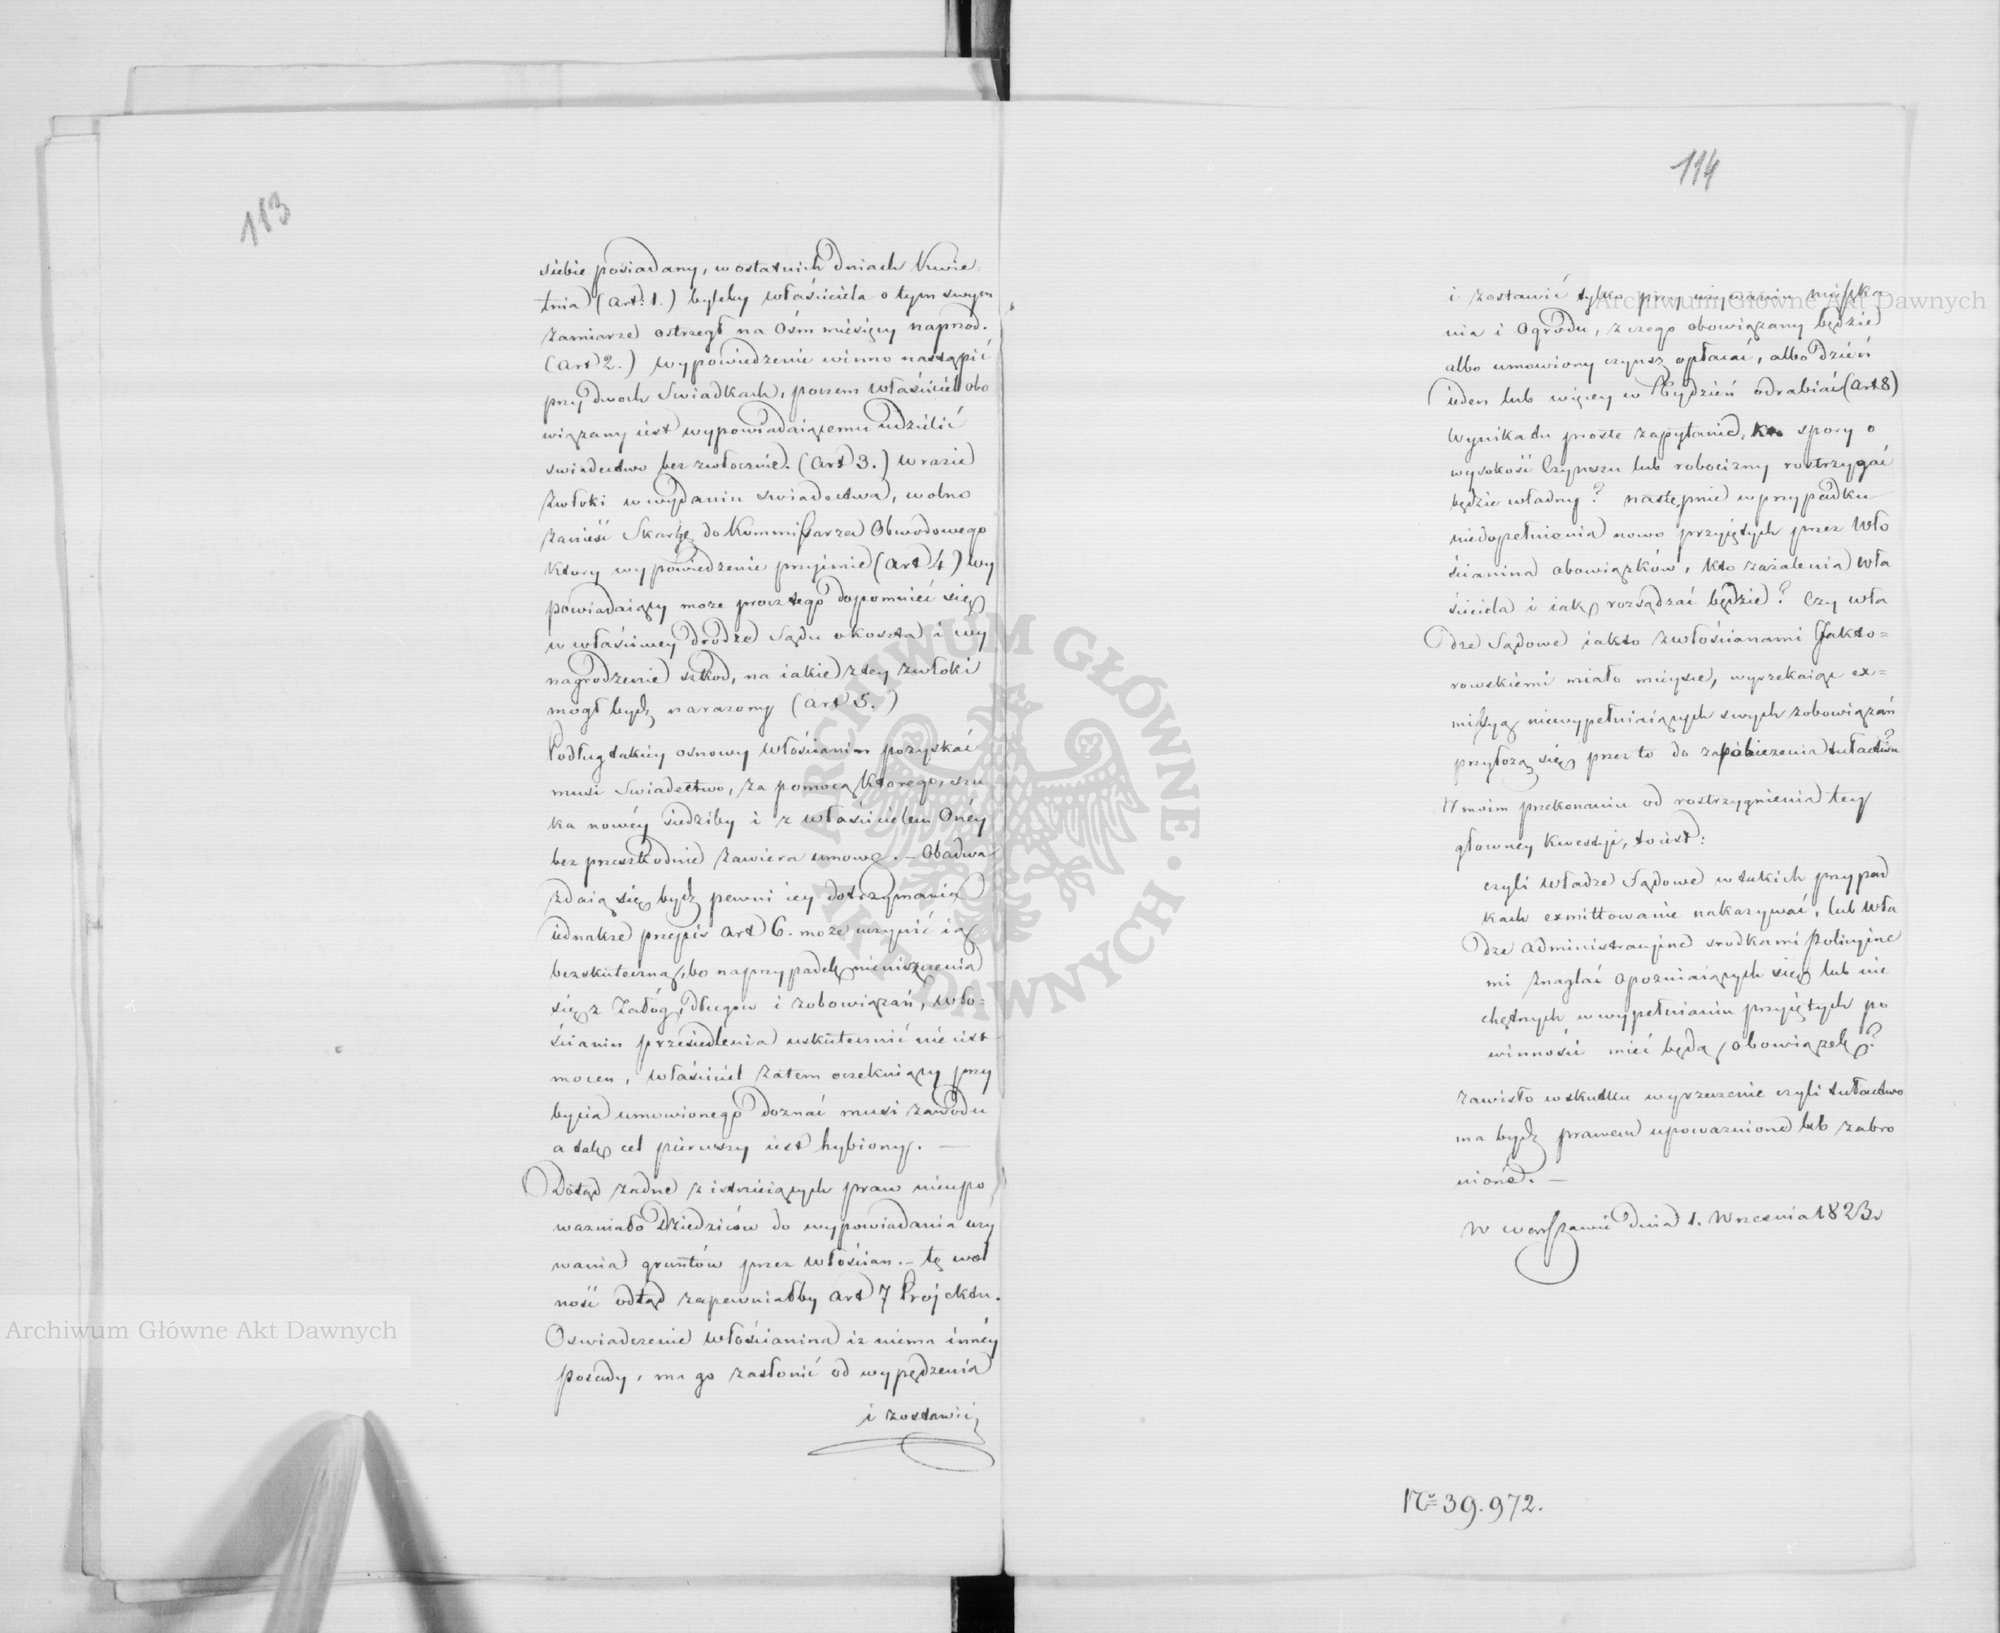 113
siebie posiadany, w ostatnich dniach Kwie-
tnia (art: 1.) byleby właściciela o tym swym
zamiarze ostrzegł na Ośm miesięcy naprzod.
(art 2.) Wypowiedzenie winno nastąpić
przy dwoch Swiadkach, poczem właściciel obo
wiązany iest wypowiadaiącemu udzielić
swiadectwo bezzwłocznie. (art 3.) W razie
zwłoki w wydaniu swiadectwa, wolno
zanieść Skargę do Kommissarza Obwodowego
ktory wypowiedzenie przyimie (art 4) Wy
powiadaiący może procz tego dopomnieć się
w właściwey drodze Sądu o koszta i wy
nagrodzenie szkod, na iakie z tey zwłoki
mogł bydz narażony (art 5.)
Podług takiey osnowy Włościanin pozyskać
musi Swiadectwo, za pomocą ktorego, szu
ka nowéy siedziby i z właścicielem Onéy
bez przeszkodnie zawiera umowę. — Obadwa
zdaią się bydz pewni iey dotrzymania
iednakze przepis art 6. może uczynić ią
bezskuteczną, bo na przypadek nieuiszczenia
się z Załóg, długow i zobowiązań, Wło-
ścianin przesiedlenia uskutecznić nie iest
mocen, właściciel zatem oczekuiący przy
bycia umowionego doznać musi zawodu
a tak cel pierwszy iest hybiony. —
Dotąd żadne z istnieiących praw nieupo
ważniało Dziedziców do wypowiadania uży
wania gruntów przez włościan. — tę wol
ność odtąd zapewniałby art 7 Projektu.
Oswiadczenie włościanina iż niema innéy
posady, ma go zasłonić od wypędzenia
i zostawić
114
i zostawić tylko przy używaniu mieszka
nia i Ogrodu, z czego obowiązany będzie
albo umowiony czynsz opłacać, albo dzień
ieden lub więcey w Tydzień odrabiać (art 8)
Wynika tu proste zapytanie, kto spory o
wysokość Czynszu lub robocizny rostrzygać
będzie władny? następnie w przypadku
niedopełnienia nowo przyiętych przez Wło
ścianina obowiązków, kto zażalenia wła
ściciela i iak rozsądzać będzie? Czy wła
dze Sądowe iak to z włościanami Jakto-
rowskiemi miało mieysce, wyrzekaiąc ex-
missyą niewypełniaiących swych zobowiązań
przyłożą się przez to do zapobieżenia tułactwu?
W moim przekonaniu od rostrzygnienia tey
głowney kwestyi, to iest:
czyli Władze Sądowe w takich przypad
kach exmittowanie nakazywać, lub Wła
dze administracyine srodkami Policyine
mi znaglać opozniaiących się lub nie
chętnych w wypełnianiu przyiętych po
winności mieć będą obowiązek?
zawisło w skutku wyrzeczenie czyli tułactwo
ma bydz prawem upoważnione lub zabro
nione. —
W Warszawie dnia 1. Wrzesnia 1823 r
Nro 39.972.
Archiwum Główne Akt Dawnych
Archiwum Główne Akt Dawnych
ARCHIWUM GŁÓWNE · AKT DAWNYCH ·